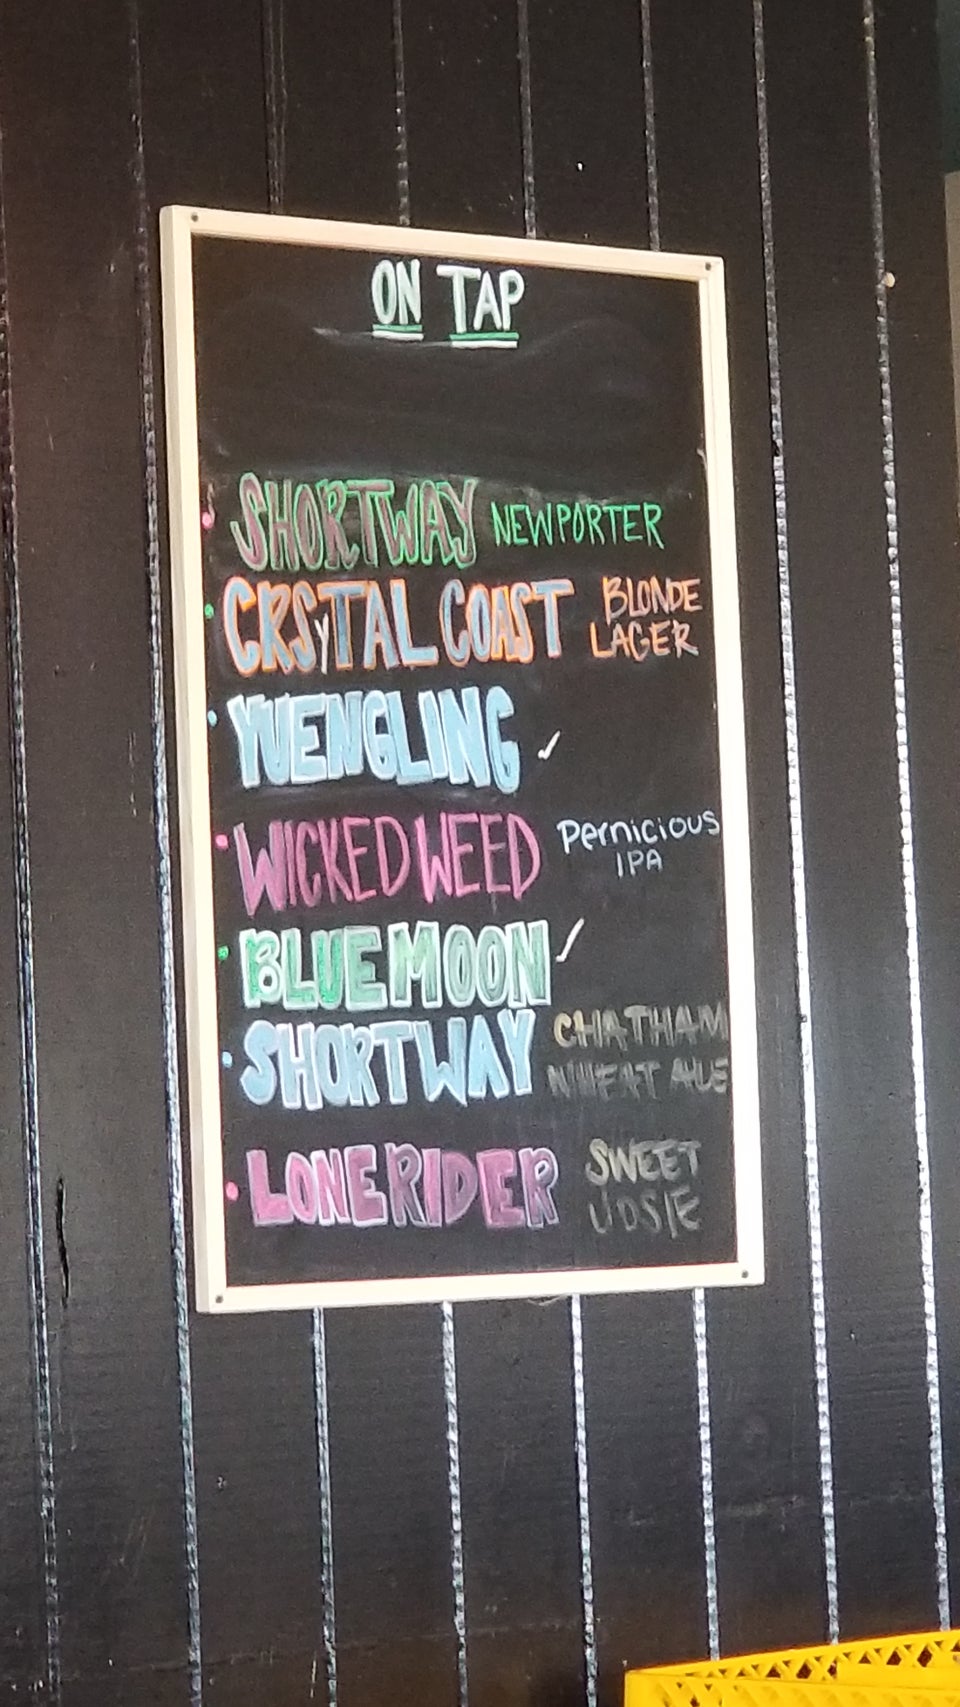 ON TAP
SHORTWAY NEWPORTER
CRSyTAL COAST BLONDE
LAGER
YUENGLING
WICKED WEED Pernicious
IPA
BLUE MOON
SHORTWAY CHATHAM
WHEAT ALE
LONERIDER SWEET
JOSIE